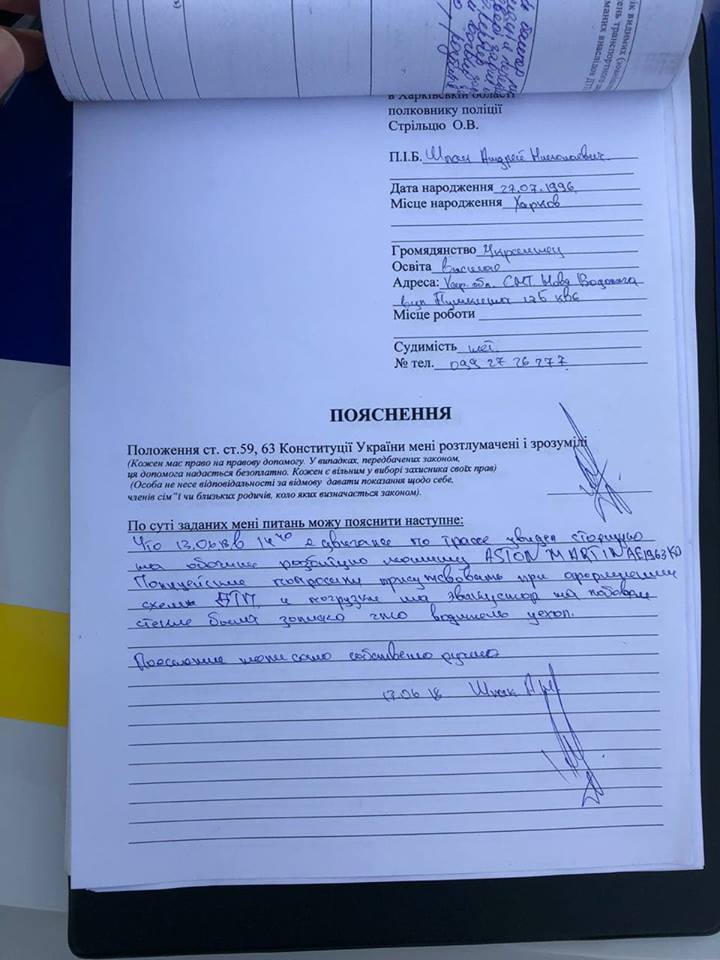 в Харківській області
полковнику поліції
Стрільцю О.В.
П.І.Б. Шпак Андрей Николаевич
Дата народження 27.07.1996
Місце народження Харков
Громадянство Украинец
Освіта
Адреса: Хар. обл. СМТ Нова Водолага
вул Пушкина 12Б кв6
Місце роботи
Судимість нет.
№ тел. 099 27 26 277
ПОЯСНЕННЯ
Положення ст. ст.59, 63 Конституції України мені розтлумачені і зрозумілі
(Кожен має право на правову допомогу. У випадках, передбачених законом,
ця допомога надається безоплатно. Кожен є вільним у виборі захисника своїх прав)
(Особа не несе відповідальності за відмову давати показання щодо себе,
членів сім"ї чи близьких родичів, коло яких визначається законом).
По суті заданих мені питань можу пояснити наступне:
Что 13.06.18 в 14 40 я двигался по трассе увидел стоящую
на обочине разбитую машину ASTON MARTIN AE1963KO
Полицейские попросили присутствовать при оформлении
схемы ДТП, и погрузке на эвакуатор на лобовом
стекле была записка что водитель уехал.
написано собственно ручно
13.06.18 Шпак А